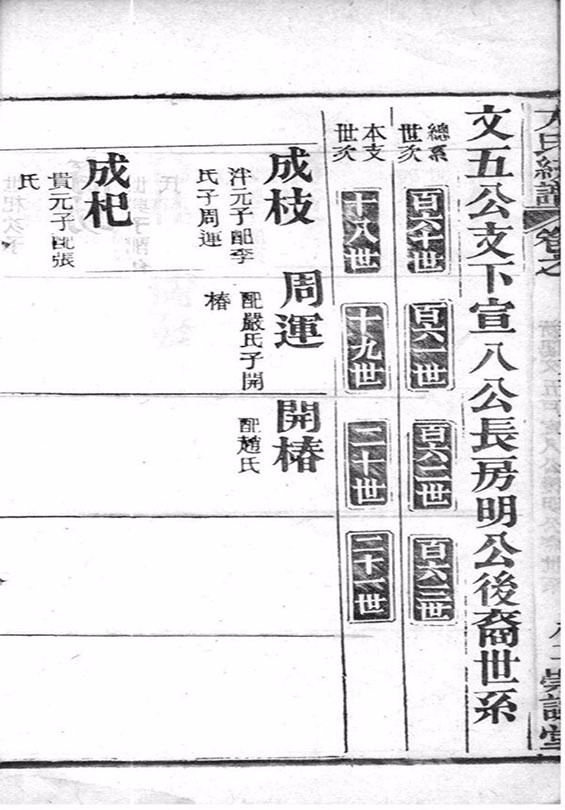 文五公支下宣八公長房明公後裔世系
總系
世次
百六十世
百六一世
百六二世
百六三世
本支
世次
十八世
十九世
二十世
二十一世
成枝
泮元子配李
氏子周運
周運
配嚴氏子開
椿
開椿
配趙氏
成杞
貢元子配張
氏
氏續譜
卷之
崇誼堂